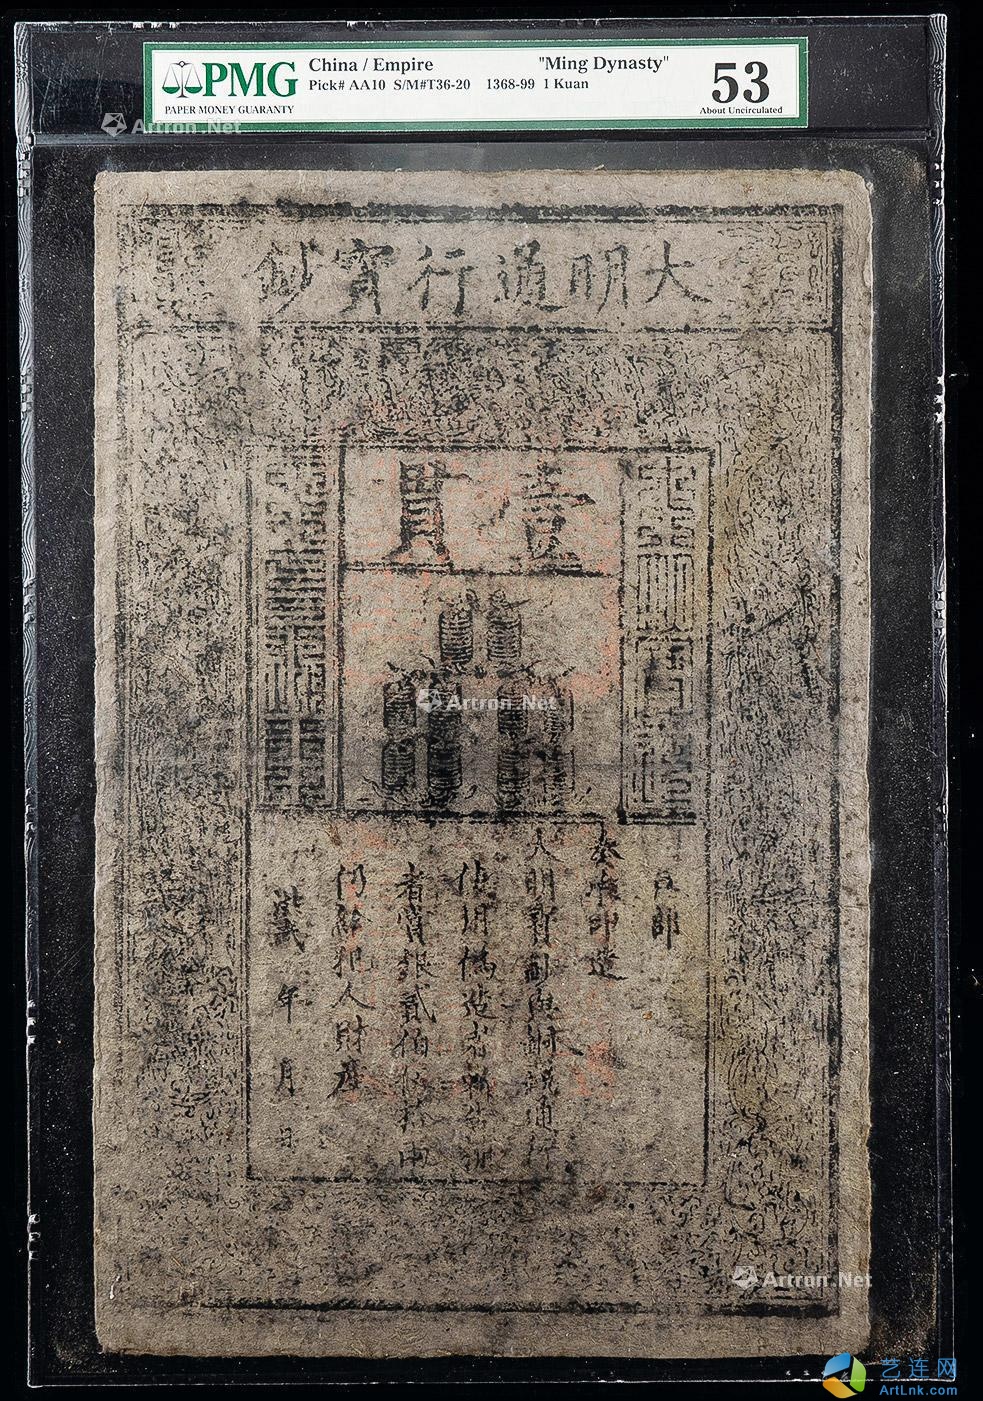 PMG
PAPER MONEY GUARANTY
China / Empire
"Ming Dynasty"
Pick# AA10 S/M#T36-20 1368-99 1 Kuan
53
About Uncirculated
Artron.Net
大明通行寶鈔
壹貫
Artron.Net
戶部
奏准印造
大明寶鈔與銅錢通行
使用偽造者斬告捕
者賞銀貳伯伍拾兩
仍給犯人財產
洪武 年 月 日
Artron.Net
艺连网
ArtLnk.com